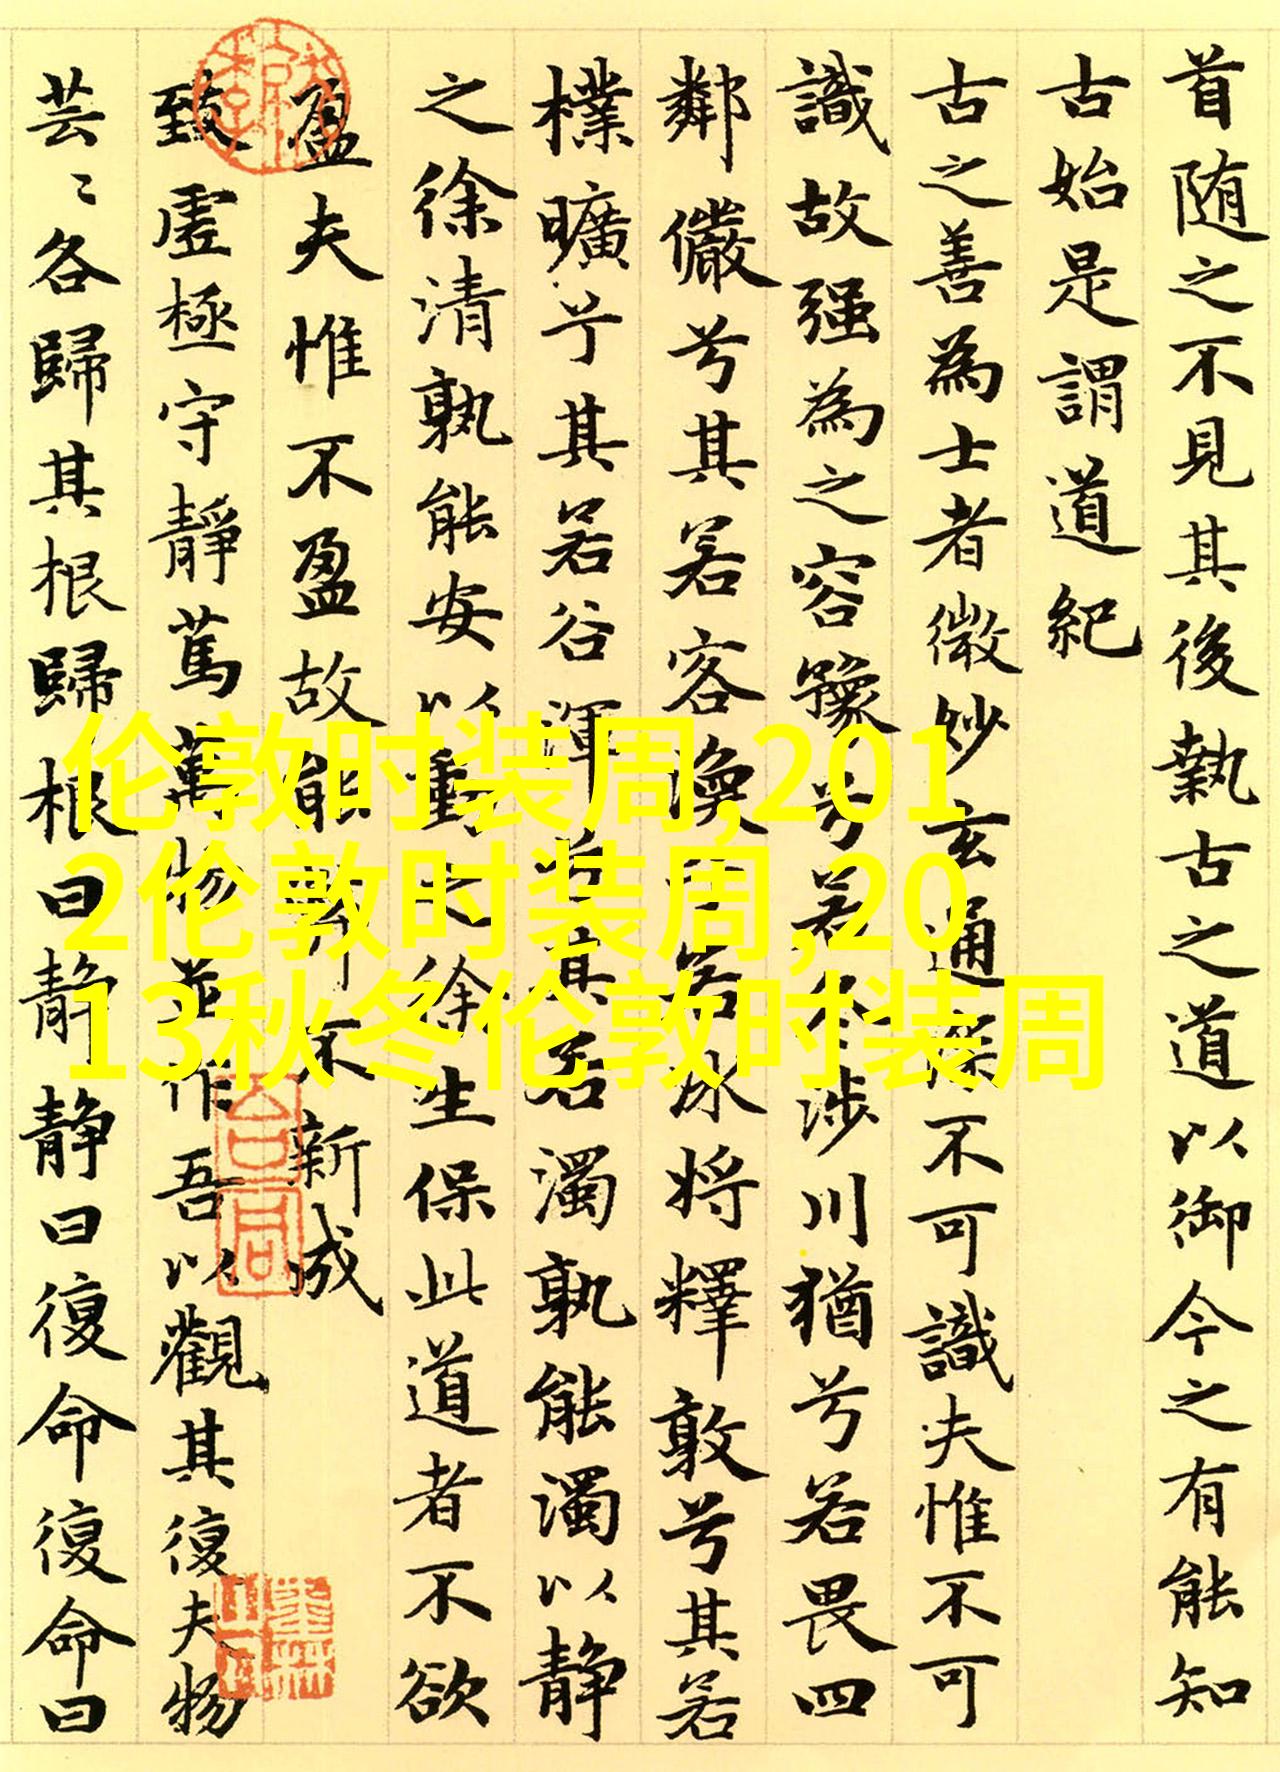 首随之不見其後執古之道以御今之有能知
古始是謂道紀
古之善為士者微妙玄通深不可識夫惟不可
識故强為之容豫兮若冬涉川猶兮若畏四
鄰儼兮其若客渙兮若冰将釋敦兮其若
樸曠兮其若谷渾兮其若濁孰能濁以静
之徐清孰能安以動之徐生保此道者不欲
盈夫惟不盈故能敝不新成
致虛極守靜篤萬物並作吾以觀其復夫物
芸〻各歸其根歸根曰静静曰復命復命曰
伦敦时装周,201
2伦敦时装周,20
13秋冬伦敦时装周